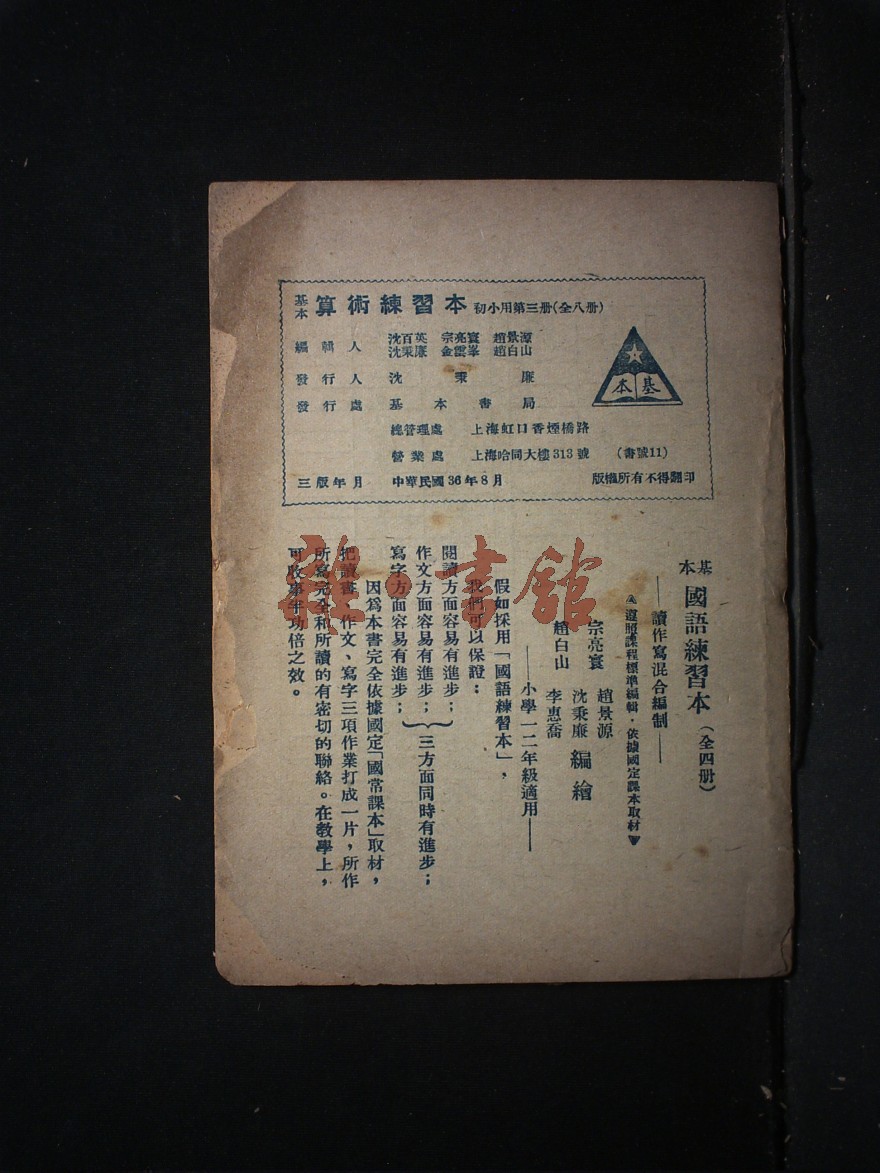 基本 算術練習本 初小用第三册(全八册)
編輯人 沈百英 宗亮寰 趙景源
沈秉廉 金雲峯 趙白山
發行人 沈秉廉
發行處 基本書局
總管理處 上海虹口香煙橋路
營業處 上海哈同大樓313號 (書號11)
三版年月 中華民國36年8月 版權所有不得翻印
本基
基本 國語練習本 (全四册)
——讀作寫混合編制——
遵照課程標準編輯·依據國定課本取材
宗亮寰 趙景源
沈秉廉 編繪
趙白山 李惠喬
——小學一二年級適用——
假如採用「國語練習本」,
我們可以保證:
閱讀方面容易有進步;
作文方面容易有進步;
寫字方面容易有進步;
三方面同時有進步;
因爲本書完全依據國定「國常課本」取材,
把讀書、作文、寫字三項作業打成一片,所作
所寫完全和所讀的有密切的聯絡。在教學上,
可收事半功倍之效。
雜·書館